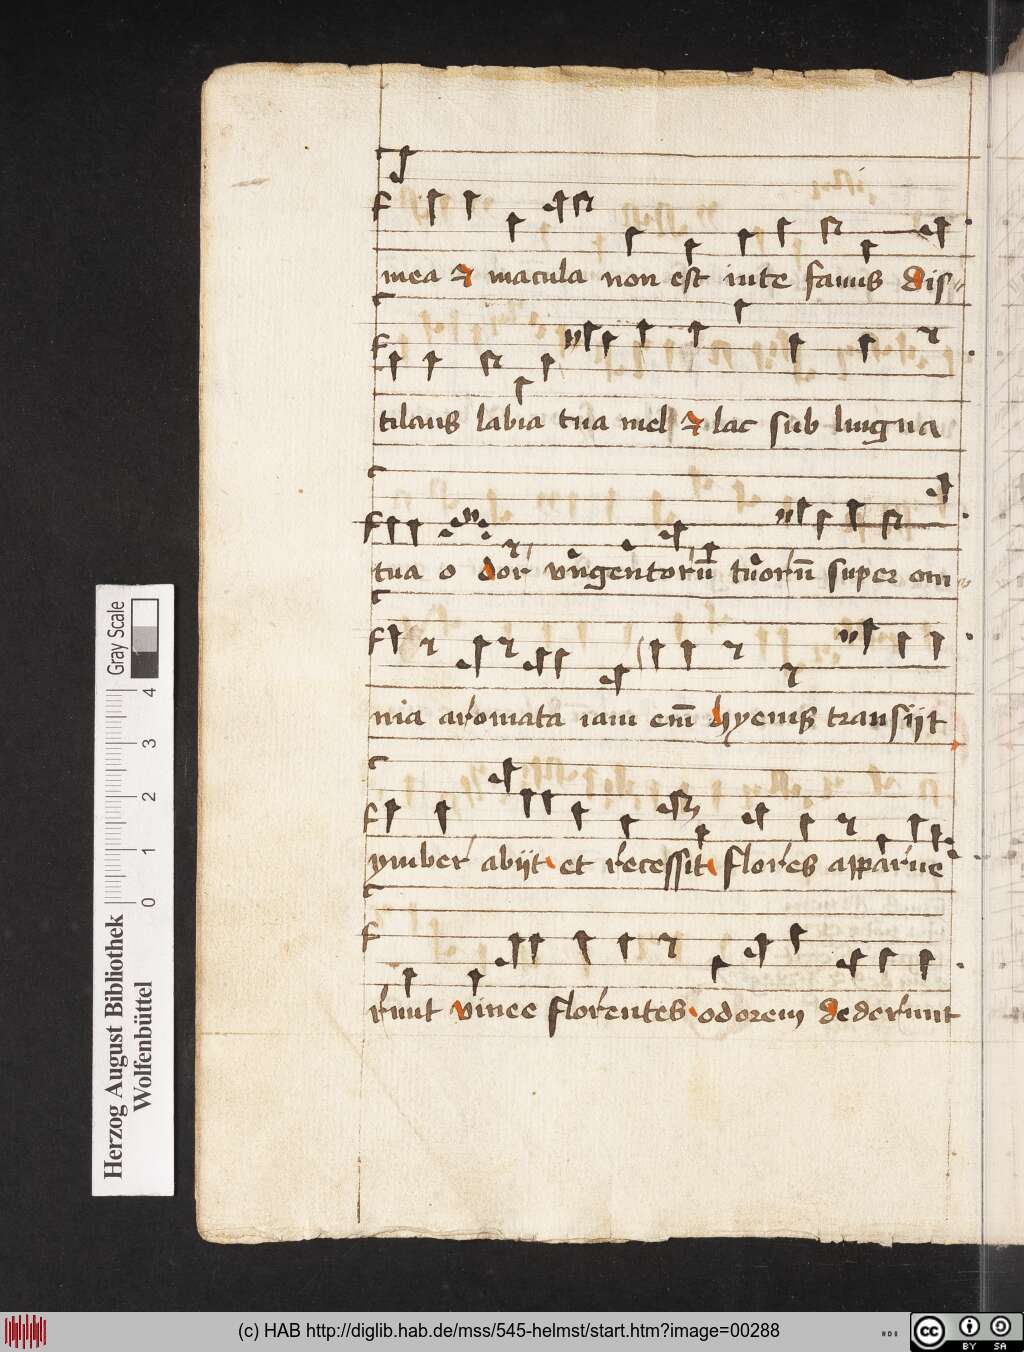 mea ⁊ macula non est inte fauus dis-
tilans labia tua mel ⁊ lac sub lingua
tua odor vngentorū tuorū super om-
nia aromata iam em̄ hyems transijt
ymber abijt et recessit flores apparue
runt vinee florentes odorem dederunt
Gray Scale
4
3
2
1
0
Herzog August Bibliothek
Wolfenbüttel
(c) HAB http://diglib.hab.de/mss/545-helmst/start.htm?image=00288
cc BY SA